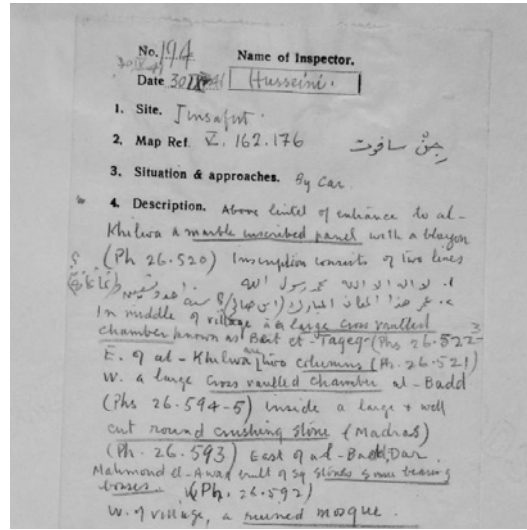 No. 194
Name of Inspector.
Date 30 IX 41 Husseini.
1. Site. Jinsafut.
2. Map Ref. V. 162.176 جنْ سافوت
3. Situation & approaches. By Car.
4. Description. Above lintel of entrance to al-
Khilwa a marble inscribed panel with a blazon
(Ph 26.520) Inscription consists of two lines
١. لا اله الا الله محمد رسول الله
٢. هذا المبارك
In middle of village is a large cross vaulted
chamber known as Beit et-Taqeq (Phs 26.522-3
E. of al-Khilwa are two columns (Ph. 26.521)
W. a large cross vaulted chamber al-Badd
(Phs 26.594-5) inside a large & well
cut round crushing stone (Madras)
(Ph. 26.593) East of al-Badd, Dar
Mahmoud el-Awad built of sq stones some bearing
bosses. (Ph. 26.592)
W. of village, a ruined mosque.